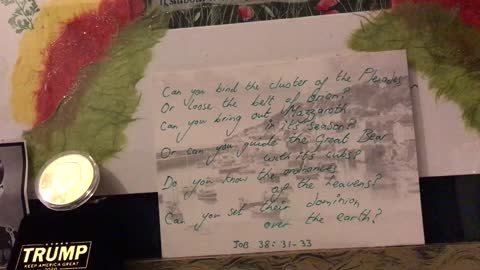 Can you bind the cluster of the Pleiades
Or loose the belt of Orion?
Can you bring out Mazzaroth
in it's season?
Or can you guide the Great Bear
with it's cubs?
Do you know the ordinances
of the heavens?
Can you set their dominion
over the earth?
JOB 38:31-33
TRUMP
KEEP AMERICA GREAT
2020